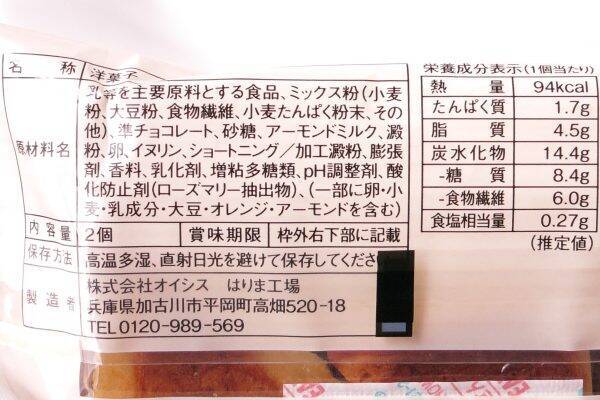 名 称 洋菓子
原材料名
乳等を主要原料とする食品、ミックス粉(小麦
粉、大豆粉、食物繊維、小麦たんぱく粉末、その
他)、準チョコレート、砂糖、アーモンドミルク、澱
粉、卵、イヌリン、ショートニング/加工澱粉、膨張
剤、香料、乳化剤、増粘多糖類、pH調整剤、酸
化防止剤(ローズマリー抽出物)、(一部に卵・小
麦・乳成分・大豆・オレンジ・アーモンドを含む)
内容量 2個 賞味期限 枠外右下部に記載
保存方法 高温多湿、直射日光を避けて保存してくださ
製造者
株式会社オイシス はりま工場
兵庫県加古川市平岡町高畑520-18
TEL0120-989-569
栄養成分表示(1個当たり)
熱 量 94kcal
たんぱく質 1.7g
脂 質 4.5g
炭水化物 14.4g
-糖 質 8.4g
-食物繊維 6.0g
食塩相当量 0.27g
(推定値)